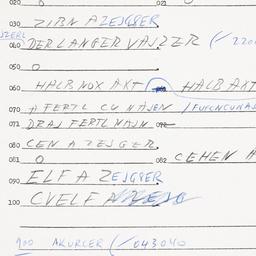 020 021
030 ZIBN A ZEJGSER
040 DER LANGER VAJZER (
050 O
060 HALB NOX AXT HALB AXT
070 A FERTL CU NAJEN
071 DRAJ FERTL NAJN 072
080 CEN A ZEJGER
081 O 082 CEHEN A
090 ELF A ZEJGSER
100 CVELF A
900 AKURCER (043040